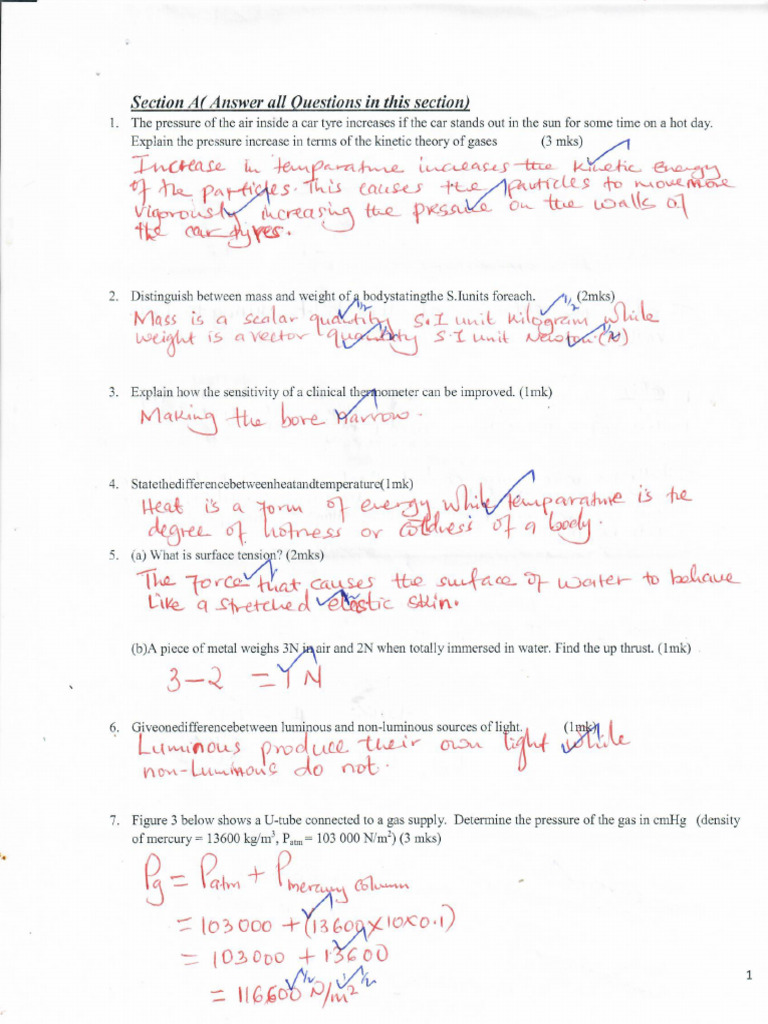 Section A( Answer all Questions in this section)
1. The pressure of the air inside a car tyre increases if the car stands out in the sun for some time on a hot day.
Explain the pressure increase in terms of the kinetic theory of gases (3 mks)
Increase in temparature increases the kinetic Energy
of the particles. This causes the particles to move more
vigorously increasing the pressure on the walls of
the car tyres.
2. Distinguish between mass and weight of a bodystatingthe S.Iunits foreach. (2mks)
½ ½
Mass is a scalar quantity S.I unit kilogram while
weight is a vector quantity S.I unit Newton (N)
½
3. Explain how the sensitivity of a clinical thermometer can be improved. (1mk)
Making the bore Narrow.
4. Statethedifferencebetweenheatandtemperature(1mk)
Heat is a form of energy while temparature is the
degree of hotness or coldness of a body.
5. (a) What is surface tension? (2mks)
The force that causes the surface of water to behave
like a stretched elastic skin.
(b)A piece of metal weighs 3N in air and 2N when totally immersed in water. Find the up thrust. (1mk)
3-2 = 1N
6. Giveonedifferencebetween luminous and non-luminous sources of light. (1mk)
Luminous produce their own light while
non-Luminous do not.
7. Figure 3 below shows a U-tube connected to a gas supply. Determine the pressure of the gas in cmHg (density
of mercury = 13600 kg/m³, Patm = 103 000 N/m²) (3 mks)
Pg = Patm + Pmercury column
= 103000 + (13600x10x0.1)
= 103000 + 13600
= 116600 N/m²
½ ½
1